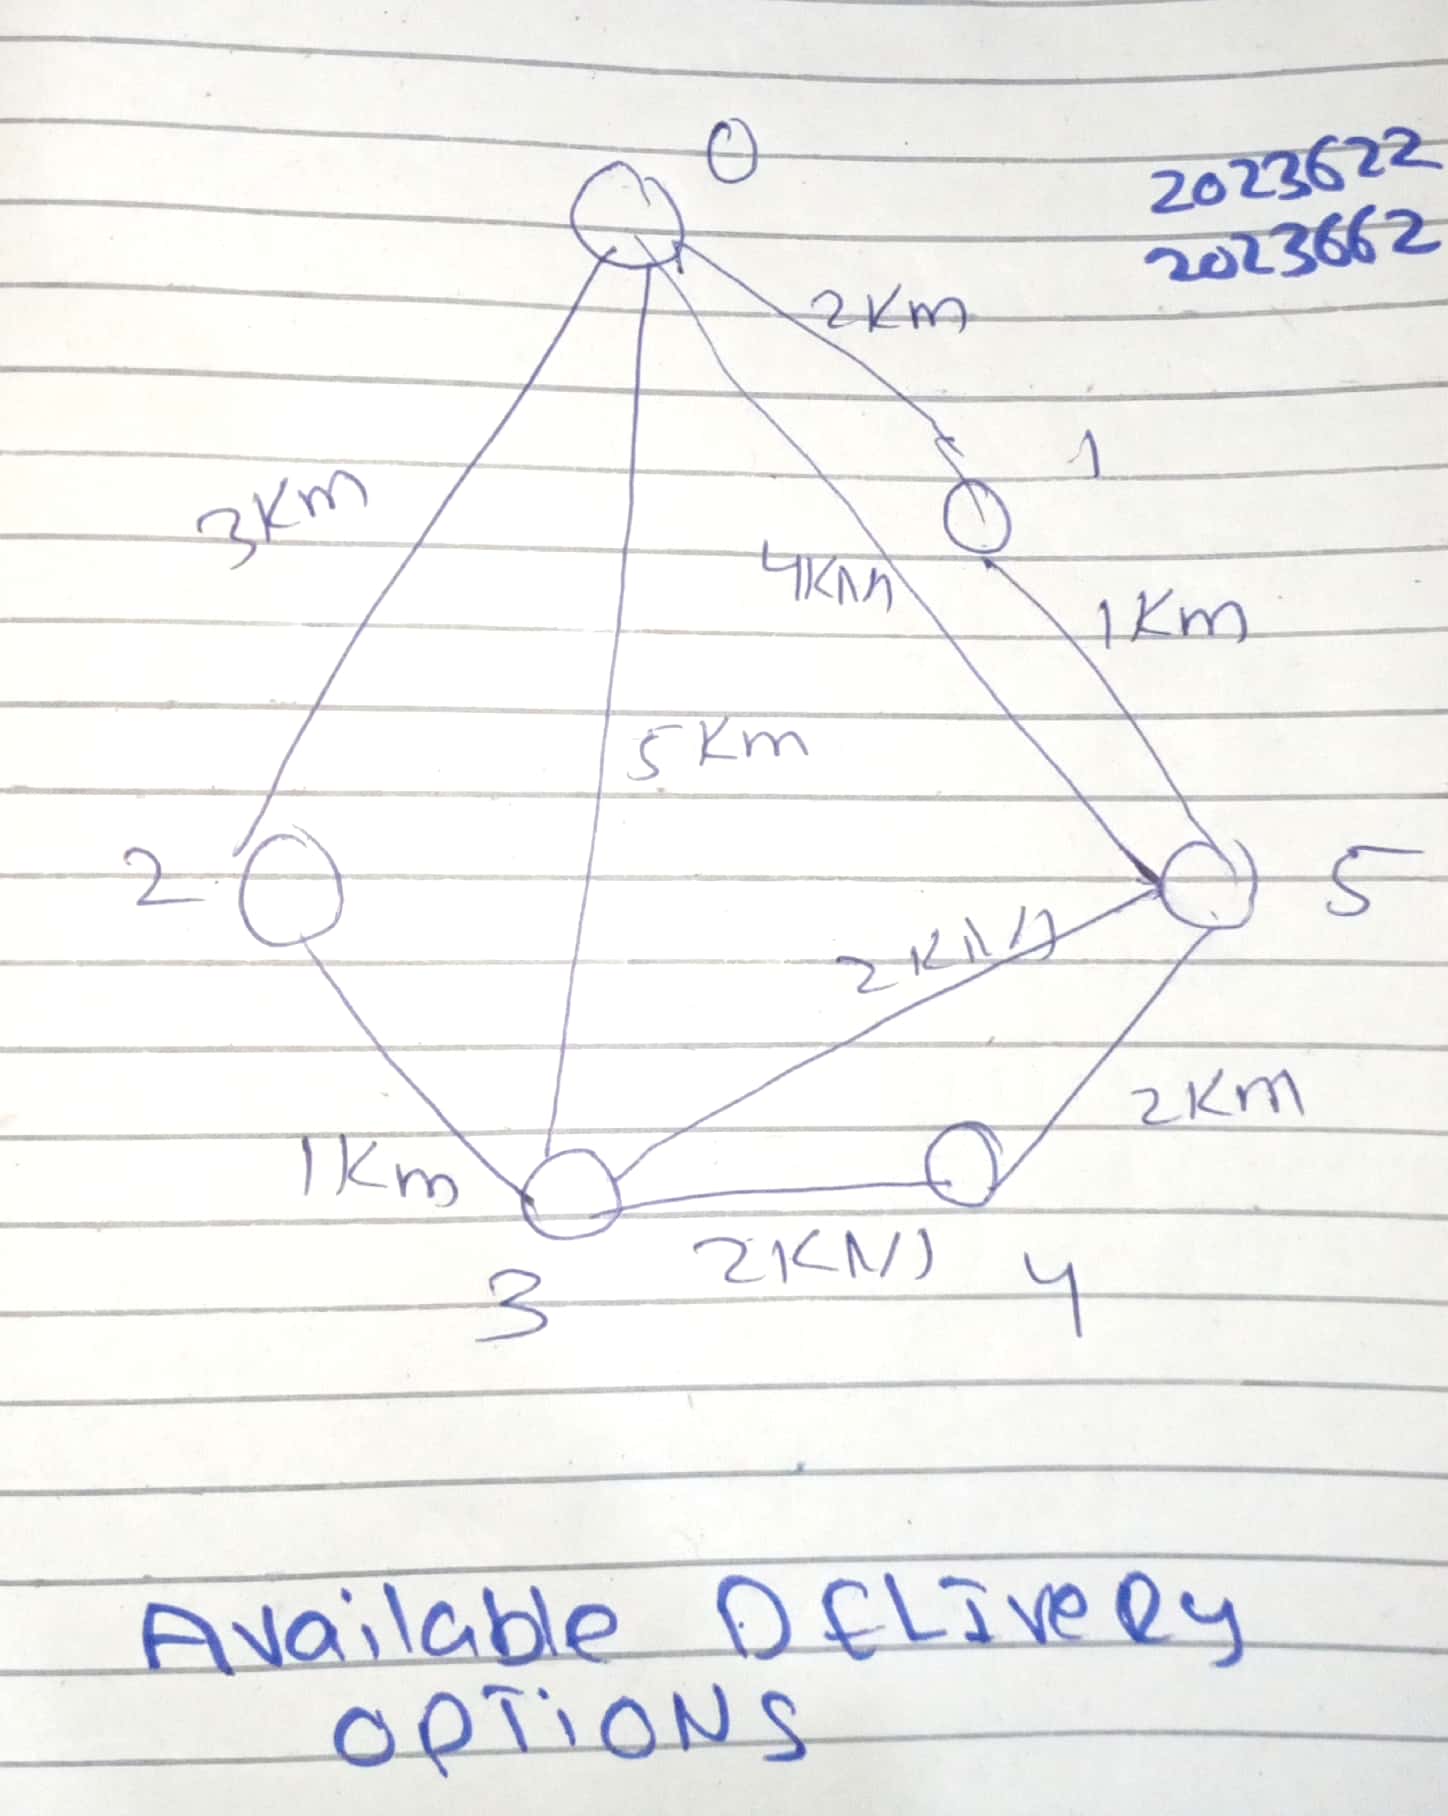 0
2023622
2023662
2Km
1
3Km
4KM
1Km
5Km
2
5
2KM
2Km
1Km
2KM
3
4
Available DELIveRy
OPTiONS